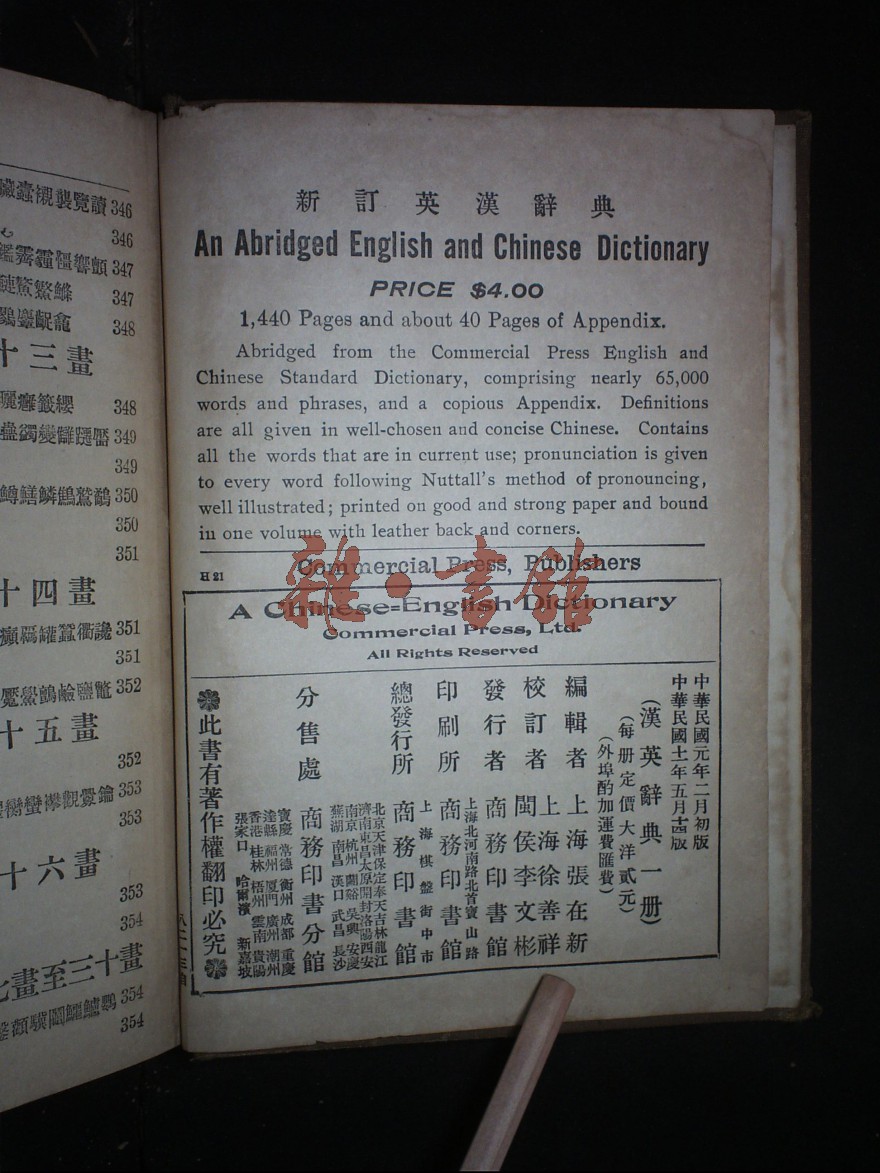 346
346
347
347
348
十三畫
348
349
349
350
350
351
十四畫
351
351
352
十五畫
352
353
353
十六畫
353
354
七畫至三十畫
354
354
新訂英漢辭典
An Abridged English and Chinese Dictionary
PRICE $4.00
1,440 Pages and about 40 Pages of Appendix.
Abridged from the Commercial Press English and
Chinese Standard Dictionary, comprising nearly 65,000
words and phrases, and a copious Appendix. Definitions
are all given in well-chosen and concise Chinese. Contains
all the words that are in current use; pronunciation is given
to every word following Nuttall's method of pronouncing,
well illustrated; printed on good and strong paper and bound
in one volume with leather back and corners.
H 21
Commercial Press, Publishers
雜·書館
A Chinese=English Dictionary
Commercial Press, Ltd.
All Rights Reserved
中華民國元年二月初版
中華民國十一年五月十四版
(漢英辭典一册)
(每册定價大洋貳元)
(外埠酌加運費匯費)
編輯者 上海張在新
校訂者 上海徐善祥
閩侯李文彬
發行者 商務印書館
印刷所 上海北河南路北首寶山路
商務印書館
總發行所 上海棋盤街中市
商務印書館
分售處 商務印書分館
北京天津保定奉天吉林龍江
濟南東昌太原開封洛陽西安
南京杭州蘭谿吳興安慶
蕪湖南昌漢口武昌長沙
寶慶常德衡州成都重慶
達縣福州厦門廣州潮州
香港桂林梧州雲南貴陽
張家口哈爾濱新嘉坡
此書有著作權翻印必究